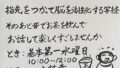 指先をつかって脳を活性化する写経
そのあと皆でお茶を飲んで
お話して楽しくすごしませんか
とき:基本第一水曜日
10:00〜12:00